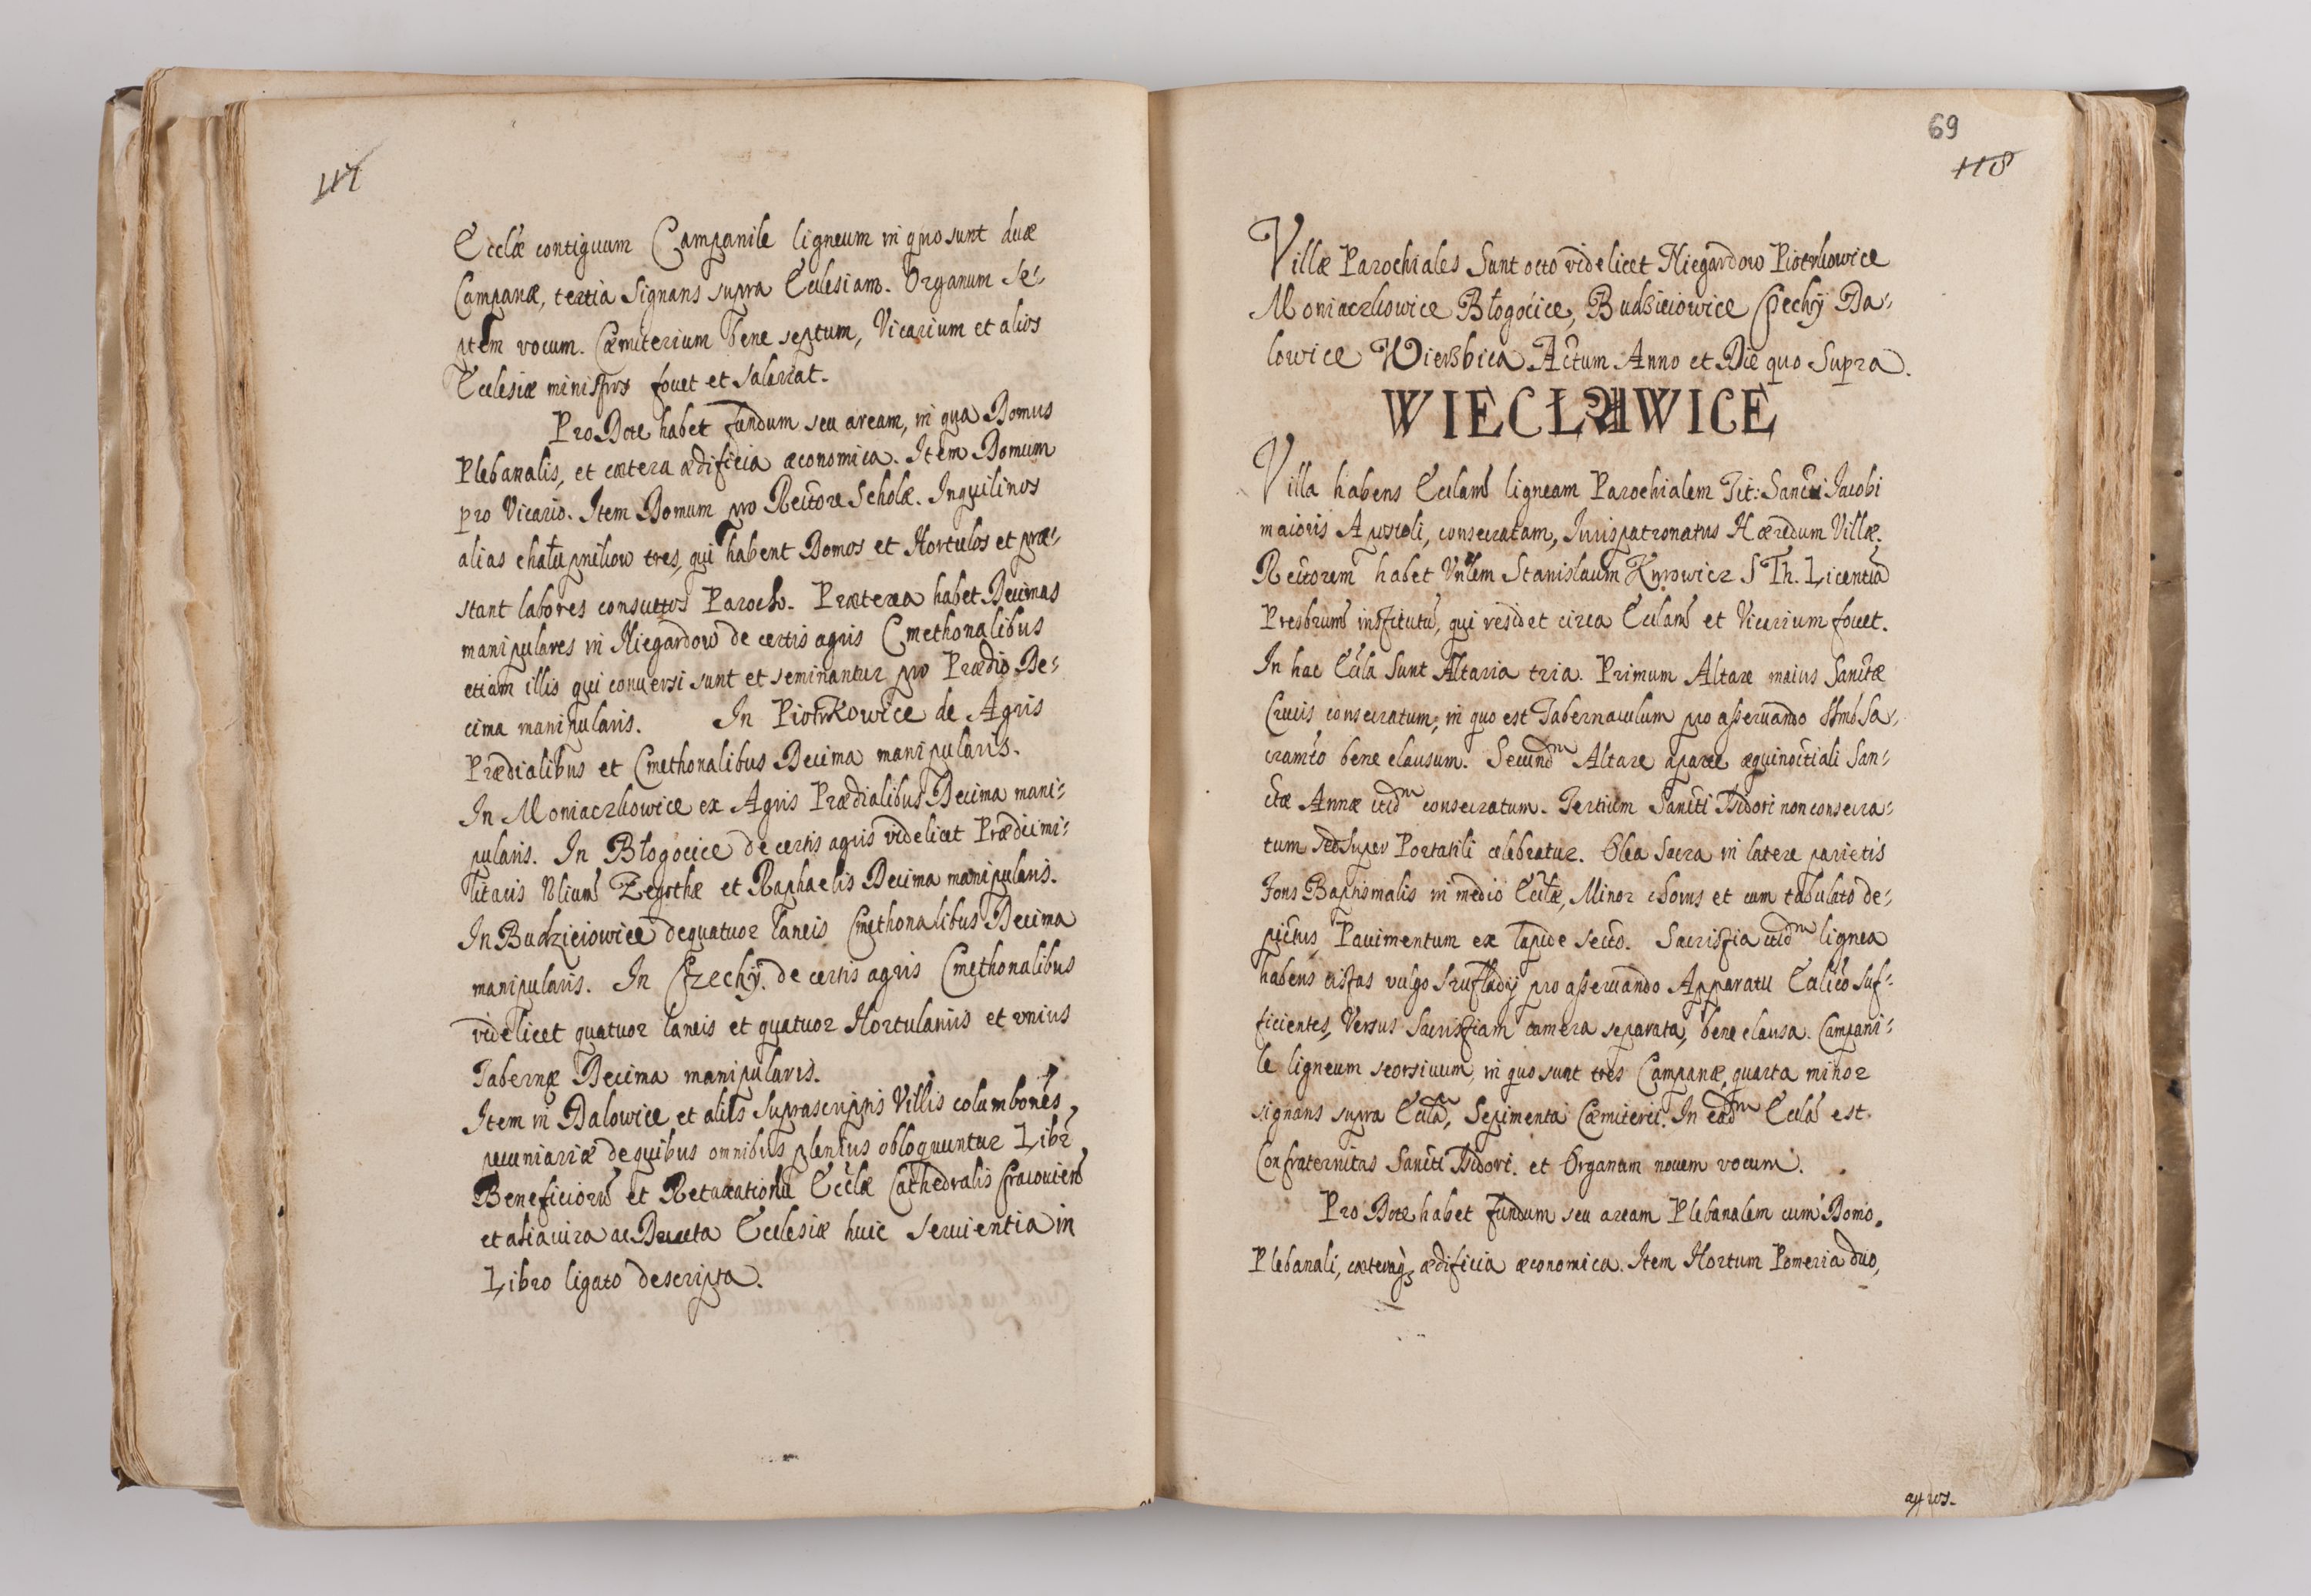 117
Ecclæ contiguum Campanile ligneum in quo sunt duæ
Campanæ, tertia signans supra Ecclesiam. Organum se-
ptem vocum. Cæmiterium bene septum, Vicarium et alios
Ecclesiæ ministros fouet et salariat.
Pro Dote habet fundum seu aream, in qua Domus
Plebanalis, et cætera ædificia æconomica. Item Domum
pro Vicario. Item Domum pro Rectore Scholæ. Inquilinos
alias chałupnikow tres, qui habent Domos et Hortulos et præ-
stant labores consuetos Parocho. Præterea habet Decimas
manipulares in Niegardow de certis agris Cmethonalibus
etiam illis qui conuersi sunt et seminantur pro Prædio De-
cima manipularis. In Piotrkowice de Agris
Prædialibus et Cmethonalibus Decima manipularis.
In Moniaczkowice ex Agris Prædialibus Decima mani-
pularis. In Błogocice de certis agris videlicet Prædij mi-
litaris Nlium Zegothæ et Raphaelis Decima manipularis.
In Budziciowice de quatuor laneis Cmethonalibus Decima
manipularis. In Czechÿ de certis agris Cmethonalibus
videlicet quatuor laneis et quatuor Hortulaniis et vnius
Tabernæ Decima manipularis.
Item in Dalowice et aliis suprascriptis Villis columbones
pecuniariæ de quibus omnibus plenius obloquuntur Libr
Beneficiorũ et Retaxationũ Ecclæ Cathedralis Cracouien
et alia iura ac Decreta Ecclesiæ huic seruientia in
Libro ligato descripta.
69
118
Villæ Parochiales Sunt octo videlicet Niegardow Piotrkowice
Moniaczkowice Błogocice, Budziciowice Czechÿ Da-
lowice Wierzbica. Actum Anno et Die quo Supra.
WIECŁAWICE
Villa habens Ecclam ligneam Parochialem Tit: Sancti Jacobi
maioris Apostoli, consecratam, Jurispatronatus Hæredum Villæ.
Rectorem habet Vnlem Stanislaum Kurowicz S Th. Licentiã
Presbrum institutũ, qui residet circa Ecclam et Vicarium fouet.
In hac Eccla sunt Altaria tria. Primum Altare maius Sanctæ
Crucis consecratum, in quo est Tabernaculum pro asseruando SSmo Sa-
cramto bene clausum. Secundm Altare a parte æquinoctiali San-
ctæ Annæ itidm consecratum. Tertium Sancti Isidori non consecra-
tum sed super Portatili celebratur. Olea Sacra in latere parietis
Fons Baptismalis in medio Ecclæ, Minor chorus et cum tabulato de-
pictus, Pauimentum ex lapide secto. Sacristia itidm lignea
habens cistas vulgo szufladÿ pro asseruando Apparatu Ecclico suf-
ficientes, Versus Sacristiam camera separata, bene clausa. Campani-
le ligneum seorsiuum, in quo sunt tres Campanæ, quarta minor
signans supra Ecclã, Sepimenta Cæmiterii. In eadm Eccla est
Confraternitas Sancti Isidori. et Organum nouem vocum.
Pro Dote habet fundum seu aream Plebanalem cum Domo
Plebanali, cæteraq3 ædificia æconomica. Item Hortum Pomeria duo,
agros.